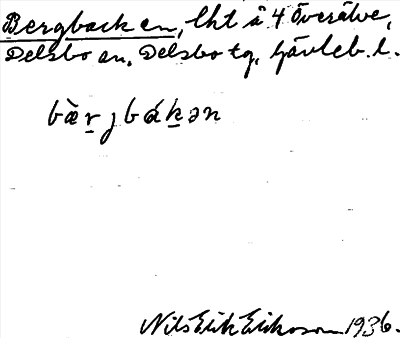 Bergbacken, lht å 4 Överälve,
Delsbo sn, Delsbo tg, Gävleb. l.
bæ̀r̲jbák̲ən
Nils Erik Eriksson 1936.